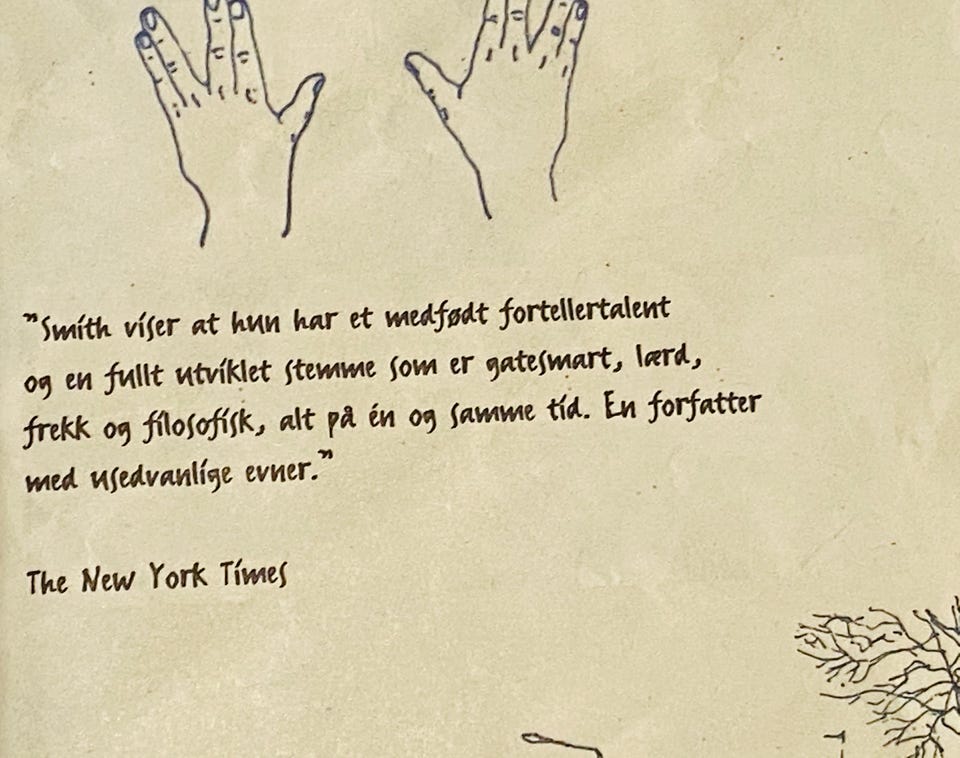 "Smith viser at hun har et medfødt fortellertalent
og en fullt utviklet stemme som er gatesmart, lærd,
frekk og filosofisk, alt på én og samme tid. En forfatter
med usedvanlige evner."
The New York Times